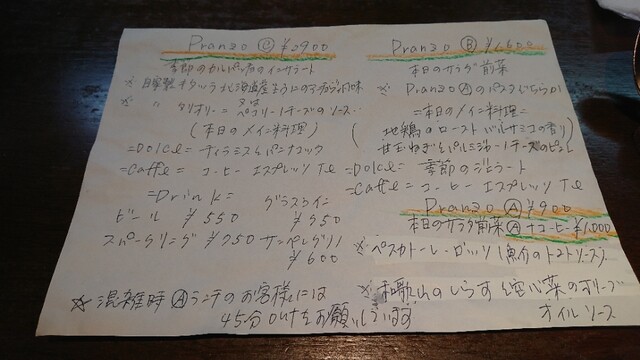 Pranzo Ⓒ ¥2900
季節のカルパッチョのインサラート
※ 自家製タリオリーニ 北海道産
※ 〃 タリオリーニ ペコリーノチーズのソース
(本日のメイン料理)
=Dolce= ティラミス&パンナコッタ
=Caffe= コーヒー エスプレッソ Te
=Drink=
ビール ¥550
グラスワイン ¥750
スパークリング ¥750 サンペレグリノ ¥600
☆ 混雑時Ⓐランチのお客様には
45分outをお願いしています
Pranzo Ⓑ ¥1,600
本日のサラダ前菜
Pranzo Ⓐのパスタどちらか
=本日のメイン料理=
(地鶏のロースト バルサミコの香り
甘玉ねぎとパルミジャーノチーズの
=Dolce= 季節のジェラート
=Caffe= コーヒー エスプレッソ Te
Pranzo Ⓐ ¥900
本日のサラダ前菜 Ⓐ+コーヒー ¥1,000
※ ペスカトーレ・ロッソ (魚介のトマトソース)
※ 和歌山のしらすと空心菜のオリーブ
オイルソース